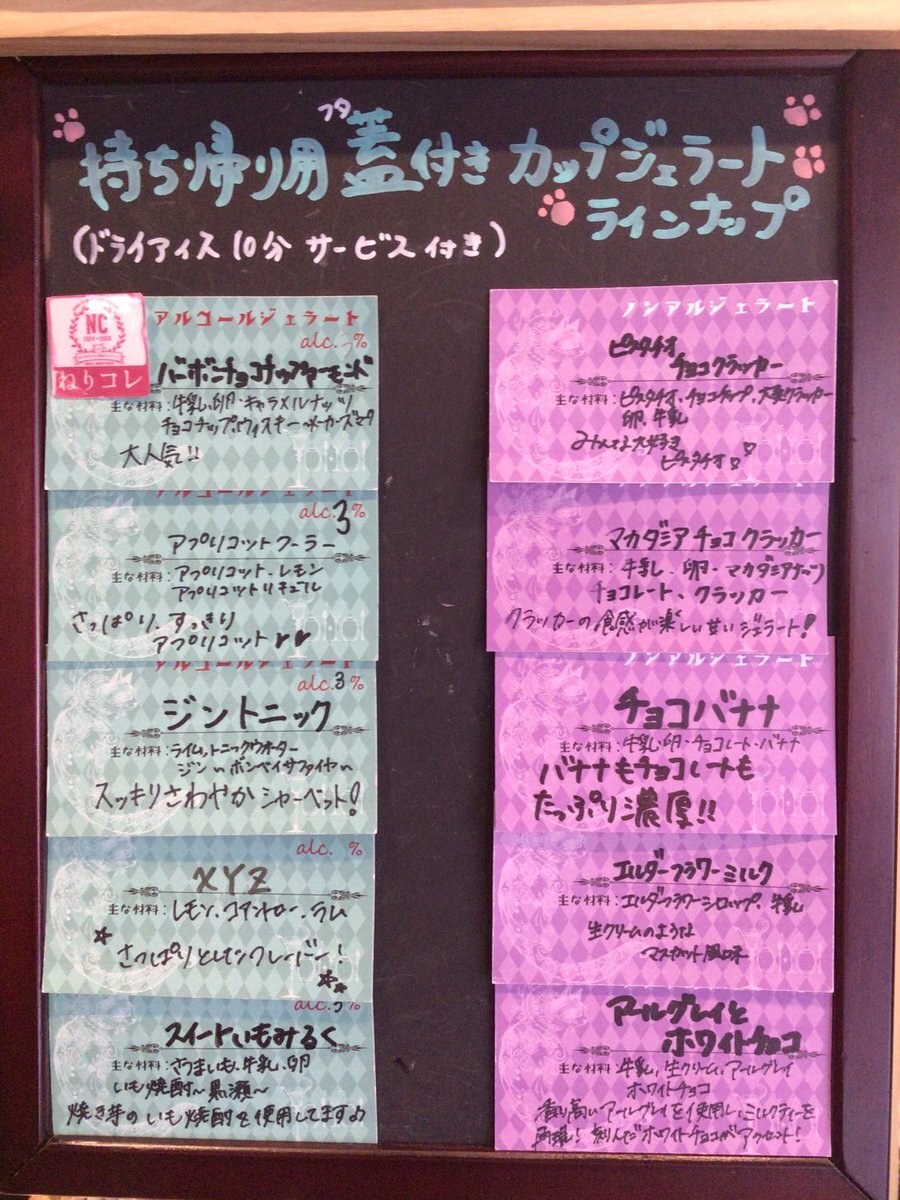 フタ
持ち帰り用 蓋付き カップジェラート
ラインナップ
(ドライアイス 10分 サービス付き)
NC
ねりコレ
アルコールジェラート
alc. %
バーボンチョコナッツアーモンド
主な材料:牛乳、卵・キャラメルナッツ
チョコチップ、ウィスキー〜メーカーズマーク
大人気!!
アルコールジェラート
alc.3%
アプリコットクーラー
主な材料:アプリコット、レモン
アプリコットリキュール
さっぱり、すっきり
アプリコット♥♥
アルコールジェラート
alc.3%
ジントニック
主な材料:ライム、トニックウォーター
ジン〜ボンベイサファイヤ〜
スッキリさわやかシャーベット!
alc. %
XYZ
主な材料:レモン、コアントロー、ラム
さっぱりとレモンフレーバー!
alc.3%
スイートいもみるく
主な材料:さつまいも、牛乳、卵
いも焼酎〜黒瀬〜
焼き芋のいも焼酎を使用してます♪
ノンアルジェラート
ピスタチオ
チョコクラッカー
主な材料:ピスタチオ、チョコチップ、クラッカー
卵、牛乳
みんな大好き
ピスタチオ♡
マカダミアチョコクラッカー
主な材料:牛乳、卵・マカダミアナッツ
チョコレート、クラッカー
クラッカーの食感が楽しい甘いジェラート!
ノンアルジェラート
チョコバナナ
主な材料:牛乳・卵・チョコレート・バナナ
バナナもチョコレートも
たっぷり濃厚!!
エルダーフラワーミルク
主な材料:エルダーフラワーシロップ、牛乳
生クリームのような
マスカット風味
アールグレイと
ホワイトチョコ
主な材料:牛乳、生クリーム、アールグレイ
ホワイトチョコ
香り高いアールグレイを使用し、ミルクティーを
再現!刻んだホワイトチョコがアクセント!